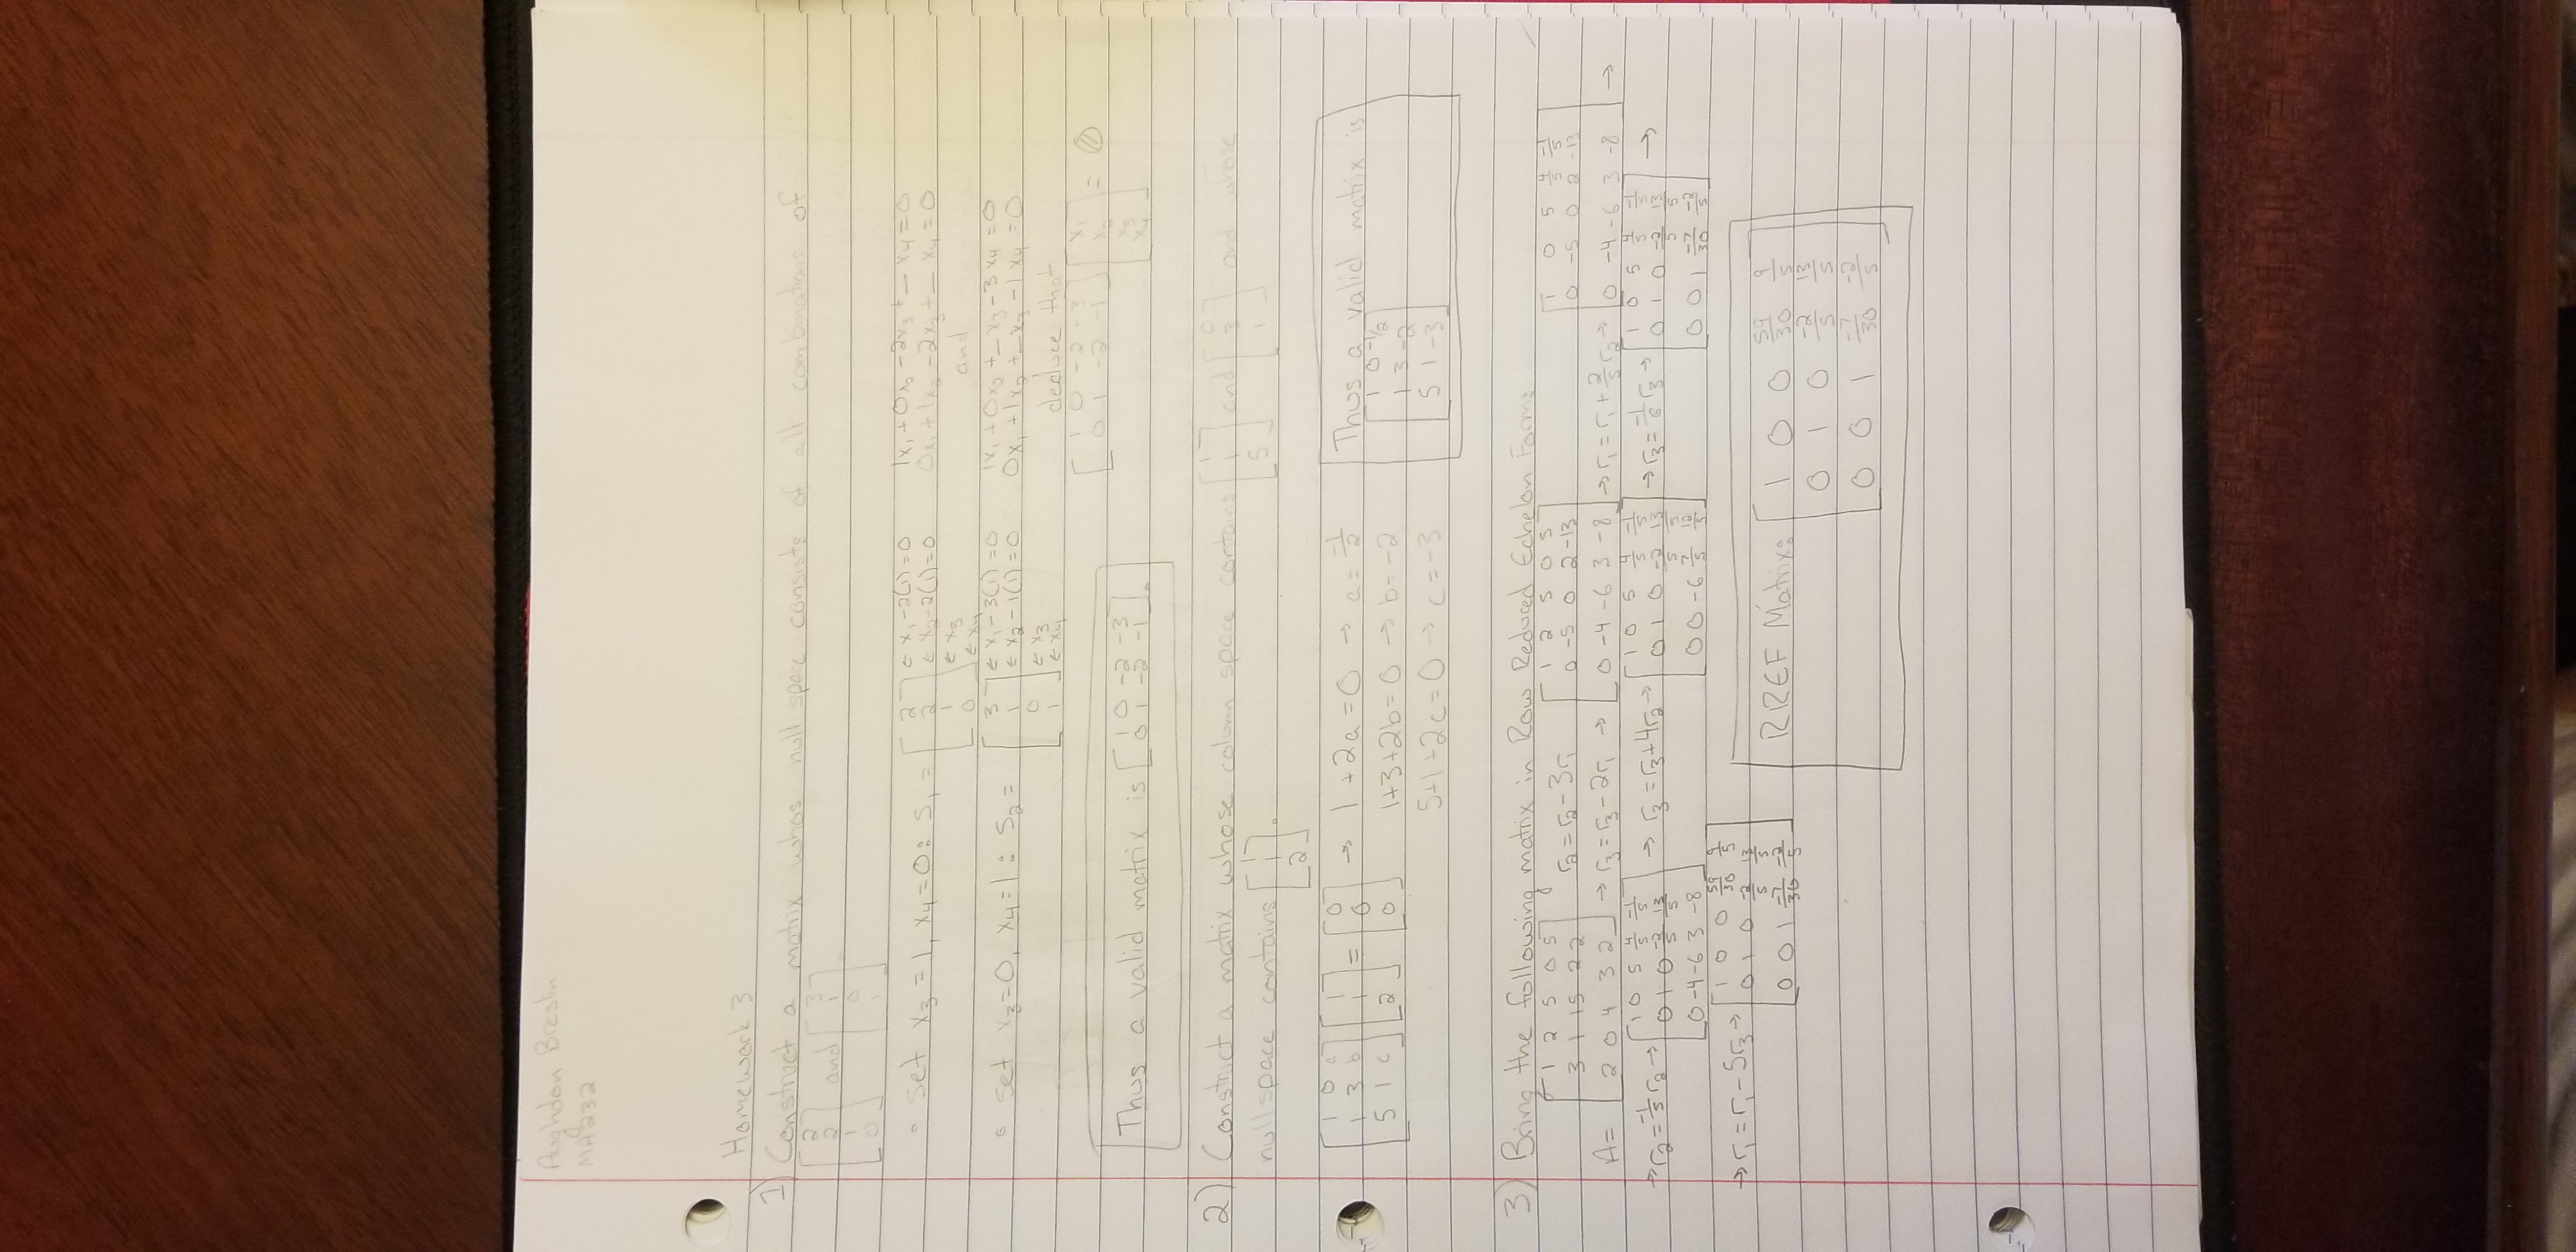 Aughdon Breslin
MA232
Homework 3
1) Construct a matrix whos null space consists of all combinations of
[2 2 1 0] and [3 1 0 1].
• Set x₃=1, x₄=0: S₁ = [2 2 1 0] ← x₁-2(1)=0 ← x₂-2(1)=0 ← x₃ ← x₄
1x₁+0x₂-2x₃+_x₄=0
0x₁+1x₂-2x₃+_x₄=0
and
• Set x₃=0, x₄=1: S₂ = [3 1 0 1] ← x₁-3(1)=0 ← x₂-1(1)=0 ← x₃ ← x₄
1x₁+0x₂+_x₃-3x₄=0
0x₁+1x₂+_x₃-1x₄=0
deduce that
[1 0 -2 -3
0 1 -2 -1] [x₁ x₂ x₃ x₄] = 0
Thus a valid matrix is [1 0 -2 -3
0 1 -2 -1].
2) Construct a matrix whose column space contains [1 1 5] and [0 3 1] and whose
nullspace contains [1 1 2].
[1 0 a
1 3 b
5 1 c] [1 1 2] = [0 0 0] → 1+2a=0 → a=-1/2
1+3+2b=0 → b=-2
5+1+2c=0 → c=-3
Thus a valid matrix is
[1 0 -1/2
1 3 -2
5 1 -3]
3) Bring the following matrix in Row Reduced Echelon Form:
A= [1 2 5 0 5
3 1 15 2 2
2 0 4 3 2] → r₂=r₂-3r₁ r₃=r₃-2r₁ →
[1 2 5 0 5
0 -5 0 2 -13
0 -4 -6 3 -8] → r₁=r₁+2/5r₂ →
[1 0 5 4/5 -1/5
0 -5 0 2 -13
0 -4 -6 3 -8] →
→ r₂=-1/5r₂ → [1 0 5 4/5 -1/5
0 1 0 -2/5 13/5
0 -4 -6 3 -8]
→ r₃=r₃+4r₂ → [1 0 5 4/5 -1/5
0 1 0 -2/5 13/5
0 0 -6 7/5 12/5]
→ r₃=-1/6r₃ → [1 0 5 4/5 -1/5
0 1 0 -2/5 13/5
0 0 1 -7/30 -2/5] →
→ r₁=r₁-5r₃ → [1 0 0 59/30 9/5
0 1 0 -2/5 13/5
0 0 1 -7/30 -2/5]
RREF Matrix: [1 0 0 59/30 9/5
0 1 0 -2/5 13/5
0 0 1 -7/30 -2/5]